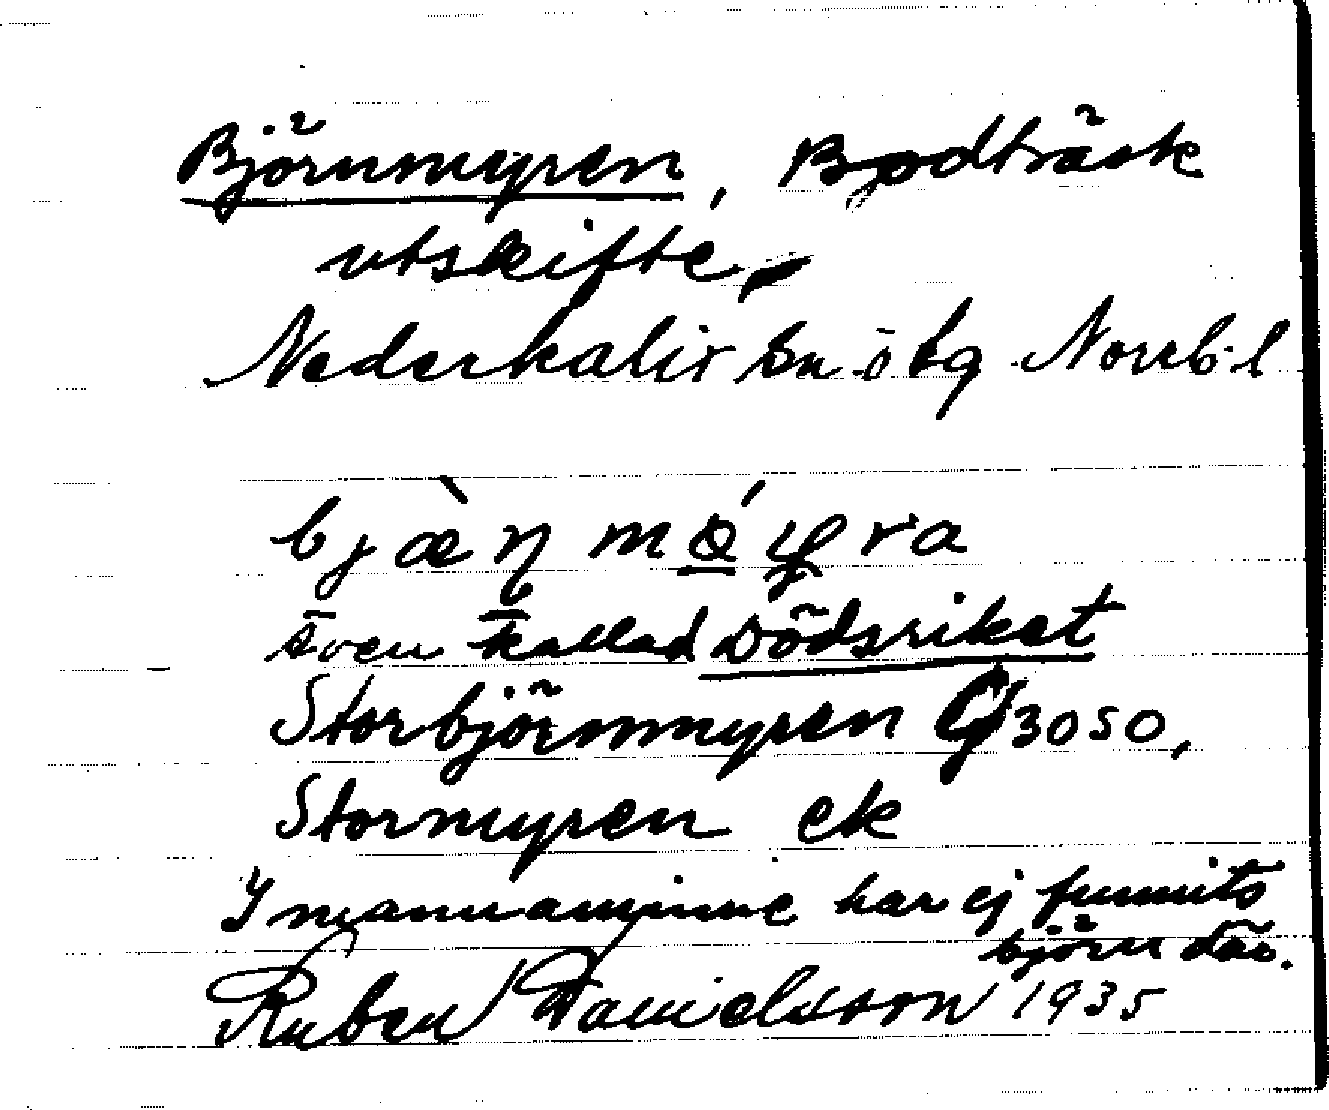 Björnmyren, Bjodträsk
utskifte,
Nederkalix sn ö tg Norrb. l
bjæ̀ṇ mǿyra
även kallad Dödsriket
Storbjörnmyren G3050,
Stormyren ek
I mannaminne har ej funnits
björn där.
Ruben Danielsson 1935